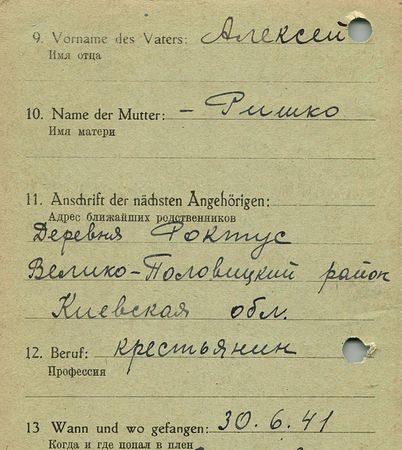 9. Vorname des Vaters: Алексей
Имя отца
10. Name der Mutter: – Ришко
Имя матери
11. Anschrift der nächsten Angehörigen:
Адрес ближайших родственников
Деревня Фоктус
Велико-Половицкий район
Киевская обл.
12. Beruf: крестьянин
Профессия
13 Wann und wo gefangen: 30.6.41
Когда и где попал в плен